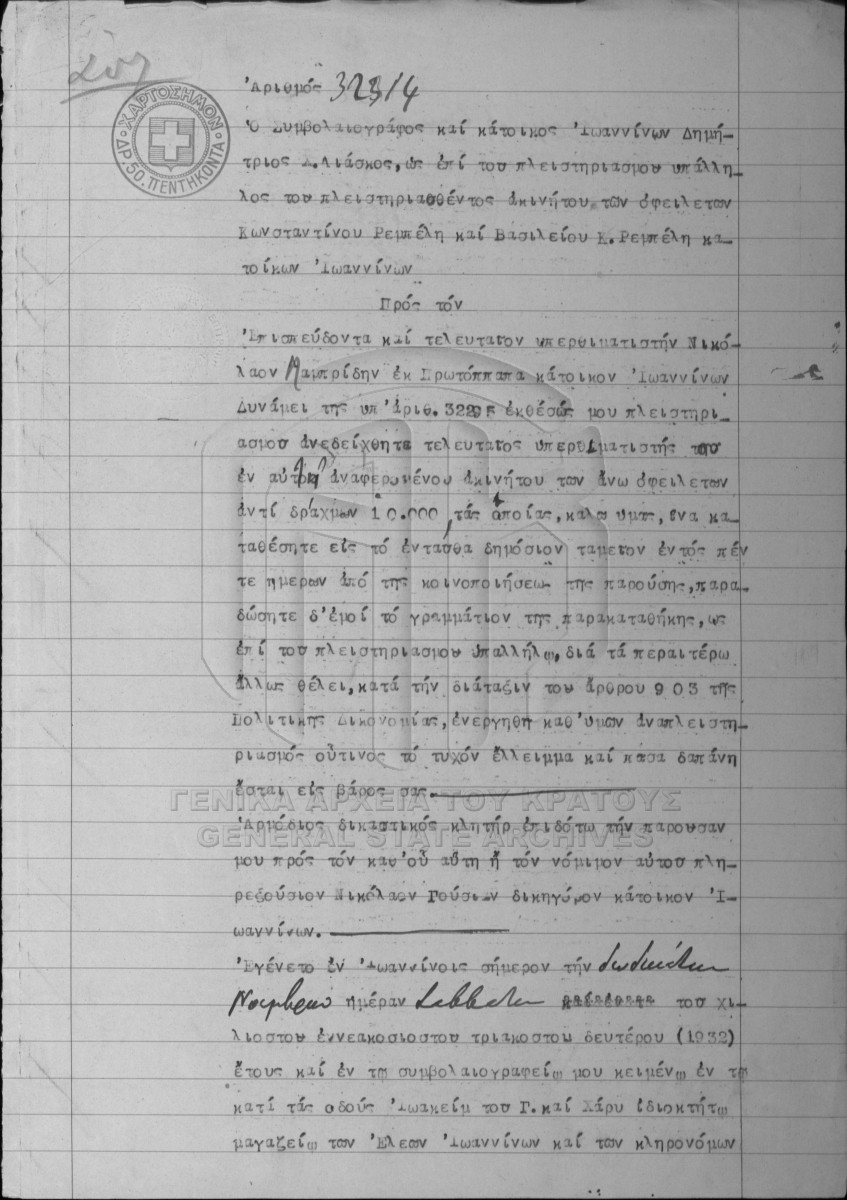 207
ΧΑΡΤΟΣΗΜΟΝ
ΔΡ.50.ΠΕΝΤΗΚΟΝΤΑ
Ἀριθμός 32314
Ὁ Συμβολαιογράφος καί κάτοικος Ἰωαννίνων Δημή-
τριος Δ.Λιάσκος, ὡς ἐπί του πλειστηριασμου υπάλλη-
λος του πλειστηριασθέντος ἀκινήτου τῶν ὀφειλετων
Κωνσταντίνου Ρεμπέλη καί Βασιλείου Κ.Ρεμπέλη κα-
τοίκων Ἰωαννίνων
Πρός τόν
Ἐπισπεύδοντα καί τελευταιον υπερθιματιστήν Νικό-
λαον Λαμπρίδην ἐκ Πρωτόππαπα κάτοικον Ἰωαννίνων
Δυνάμει της υπ'ἀριθ. ἐκθέσώς μου πλειστηρι-
ασμου ἀνεδείχθητε τελευταιος υπερθιματιστής του
ἐν αὐτῇ ἀναφερομένου ἀκινήτου των ἄνω ὀφειλετων
ἀντί δράχμων 10.000, τάς ὁποίας, καλω υμας, ἵνα κα-
ταθέσητε εἰς τό ἐνταύθα δημόσιον ταμειον ἐντός πέν
τε ημερων ἀπό της κοινοποιήσεως της παρούσης, παρα-
δώσητε δ'ἐμοί τό γραμμάτιον της παρακαταθήκης, ως
ἐπί του πλειστηριασμου υπαλλήλῳ, διά τά περαιτέρω
ἄλλως θέλει, κατά τήν διάταξιν του ἄρθρου 903 τῆς
Πολιτικης Δικονομίας, ἐνεργηθη καθ'υμων ἀναπλειστη-
ριασμός οὗτινος τό τυχόν ἔλλειμμα καί πασα δαπάνη
ἔσται εἰς βάρος σας.
Ἁρμόδιος δικαστικός κλητήρ ἐπιδότω τήν παρουσαν
μου πρός τόν καθ'οὗ αὕτη ἤ τόν νόμιμον αὐτου πλη-
ρεξούσιον Νικόλαον Γούσιαν δικηγόρον κάτοικον Ἰ-
ωαννίνων.
Ἐγένετο ἐν Ἰωαννίνοις σήμερον τήν δωδεκάτην
Νοεμβρίου ημέραν Σάββατον του χι-
λιοστου ἐννεακοσιοστου τριακοστου δευτέρου (1932)
ἔτους καί ἐν τῳ συμβολαιογραφείῳ μου κειμένῳ ἐν τῳ
κατί τάς οδούς Ἰωακείμ του Γ. καί Χάρυ ἰδιοκτήτῳ
μαγαζείῳ των Ἐλεων Ἰωαννίνων καί των κληρονόμων
ΓΕΝΙΚΑ ΑΡΧΕΙΑ ΤΟΥ ΚΡΑΤΟΥΣ
GENERAL STATE ARCHIVES